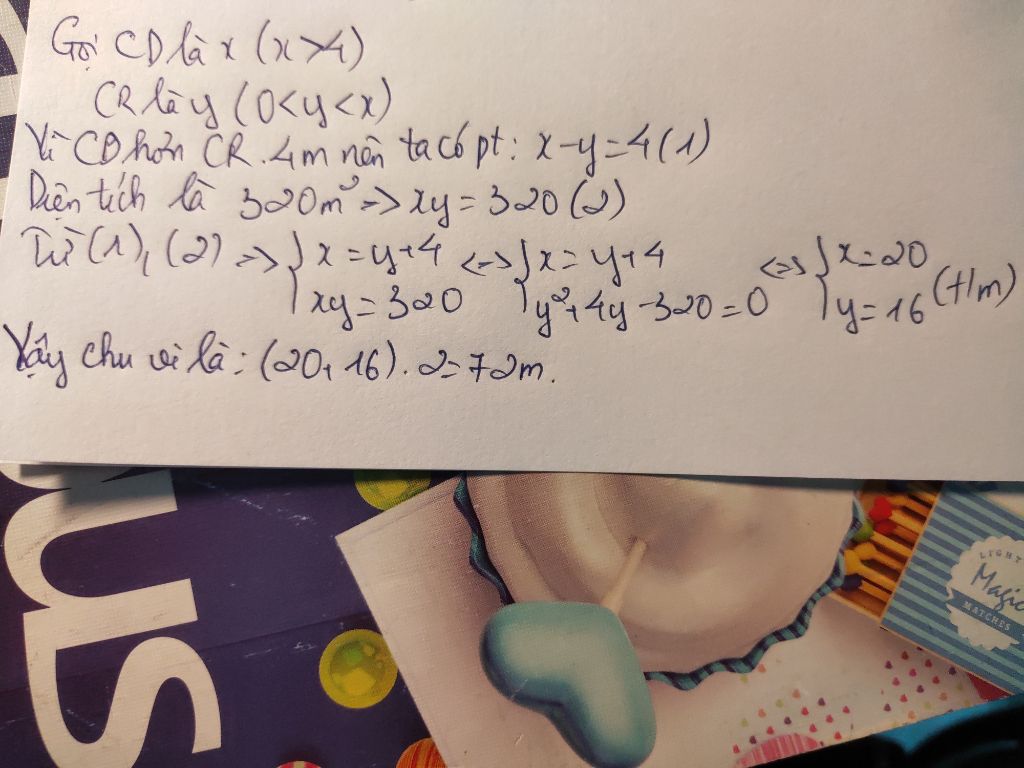 Gọi CD là x (x>4)
CR là y (0<y<x)
Vì CD hơn CR 4m nên ta có pt: x-y=4(1)
Diện tích là 320m² => xy = 320 (2)
Từ (1), (2) => { x = y+4 xy = 320 <=> { x = y+4 y²+4y-320=0 <=> { x=20 y=16 (t/m)
Vậy chu vi là: (20+16).2=72m.
LIGHT
Magic
MATCHES
us